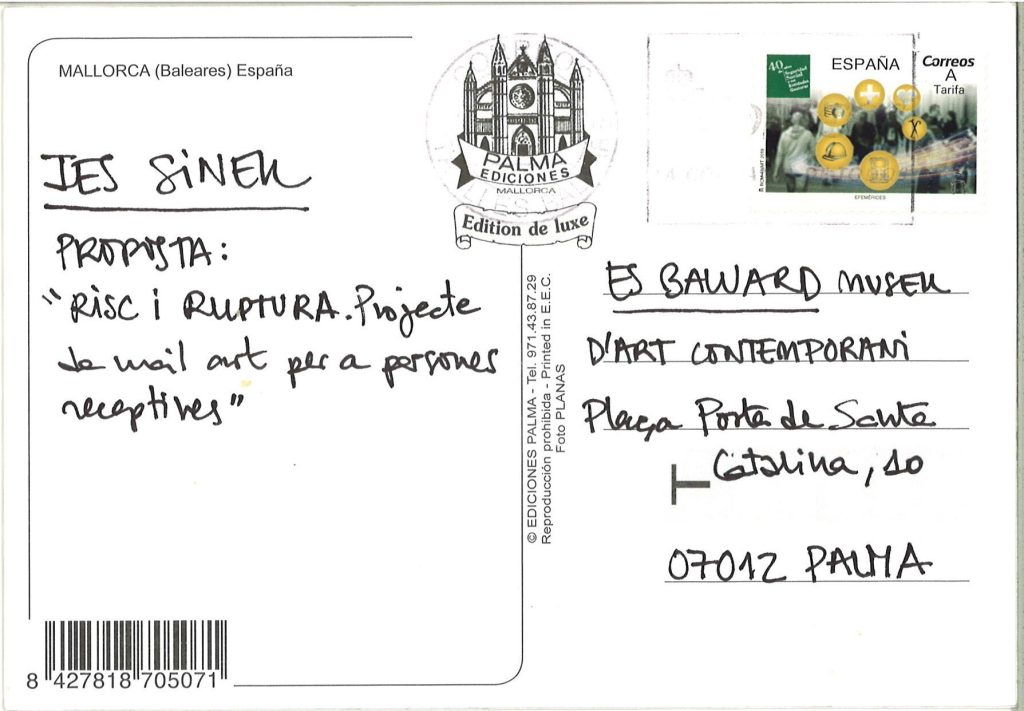 MALLORCA (Baleares) España
JES SINEK
PROPOSTA:
"RISC i RUPTURA. Projecte
de mail art per a persones
receptives"
8 427818 705071
PALMA
EDICIONES
MALLORCA
Edition de luxe
© EDICIONES PALMA - Tel. 971.43.87.29
Reproducción prohibida - Printed in E.E.C.
Foto PLANAS
40 años de
Seguridad
Social
y sus
Entidades
Gestoras
ESPAÑA
Correos
A
Tarifa
EFEMÉRIDES
ES BALUARD MUSEU
D'ART CONTEMPORANi
Plaça Porta de Santa
Catalina, 10
T
07012 PALMA